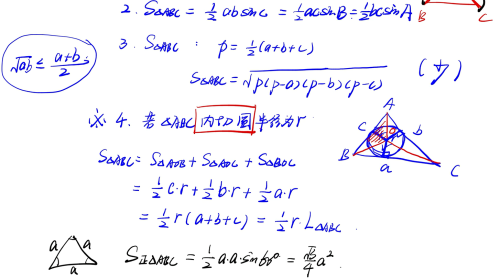 2. S△ABC = 1/2 ab sinC = 1/2 ac sinB = 1/2 bc sinA
B C
√ab ≤ (a+b)/2
3. S△ABC : p = 1/2(a+b+c)
S△ABC = √p(p-a)(p-b)(p-c)
※ 4. 若△ABC 内切圆 半径为r
A
c b
B a C
S△ABC = S△AOB + S△AOC + S△BOC
= 1/2 c·r + 1/2 b·r + 1/2 a·r
= 1/2 r(a+b+c) = 1/2 r·L△ABC
a a
a
S正△ABC = 1/2 a·a·sin60° = √3/4 a²